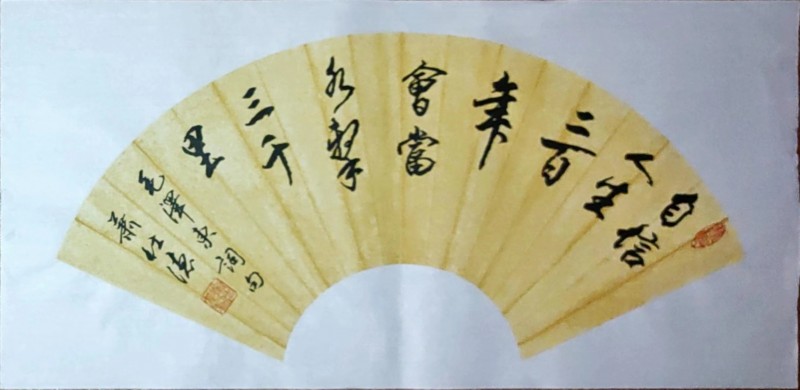 自信
人生
二百
年
會當
水擊
三千
里
毛澤東詞句
蕭仕德